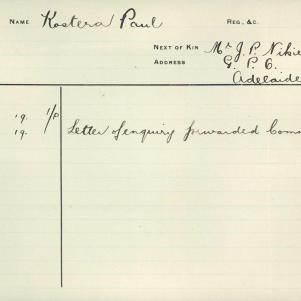 NAME Kostera Paul REG, &C.
NEXT OF KIN Mr J. P. Nikie
ADDRESS G. P. O.
Adelaide
19. 1/P
19. Letter of enquiry forwarded Com